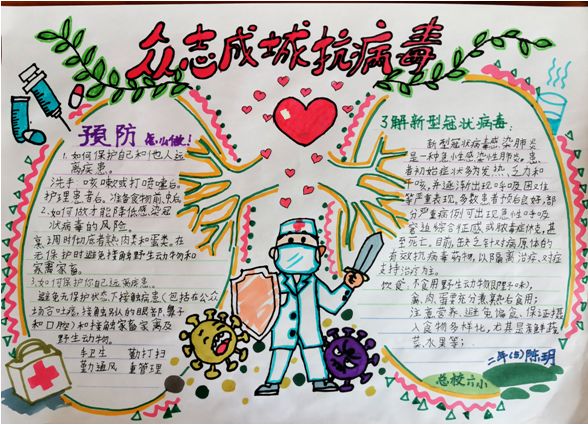 众志成城抗病毒
预防 怎么做!
1.如何保护自己和他人远
离疾患。
洗手:咳嗽或打喷嚏后。
护理患者后。准备食物前,中后
2.如何做才能降低感染冠
状病毒的风险。
烹调时彻底煮熟肉类和蛋类。在
无保护时避免接触野生动物和
家禽家畜。
3.如何保护你自己远离疾患。
避免无保护状态下接触病患(包括在公众
场合吐痰,接触别人的眼部,鼻子
和口腔)和接触家畜家禽及
野生动物。
手卫生 勤打扫
勤通风 重管理
了解新型冠状病毒:
新型冠状病毒感染肺炎
是一种急性感染性肺炎。患
者初始症状多为发热、乏力和
干咳,并逐渐出现呼吸困难
等严重表现。多数患者预后良好,部
分严重病例可出现急性呼吸
窘迫综合征或脓毒症休克,甚
至死亡。目前,缺乏针对病原体的
有效抗病毒药物,以隔离治疗、对症
支持治疗为主。
饮食:不食用野生动物
禽、肉、蛋要充分煮熟后食用;
注意营养,避免偏食,保证摄
入食物多样化,尤其是新鲜蔬
菜、水果等;
二年(5)陈玥
总校六小